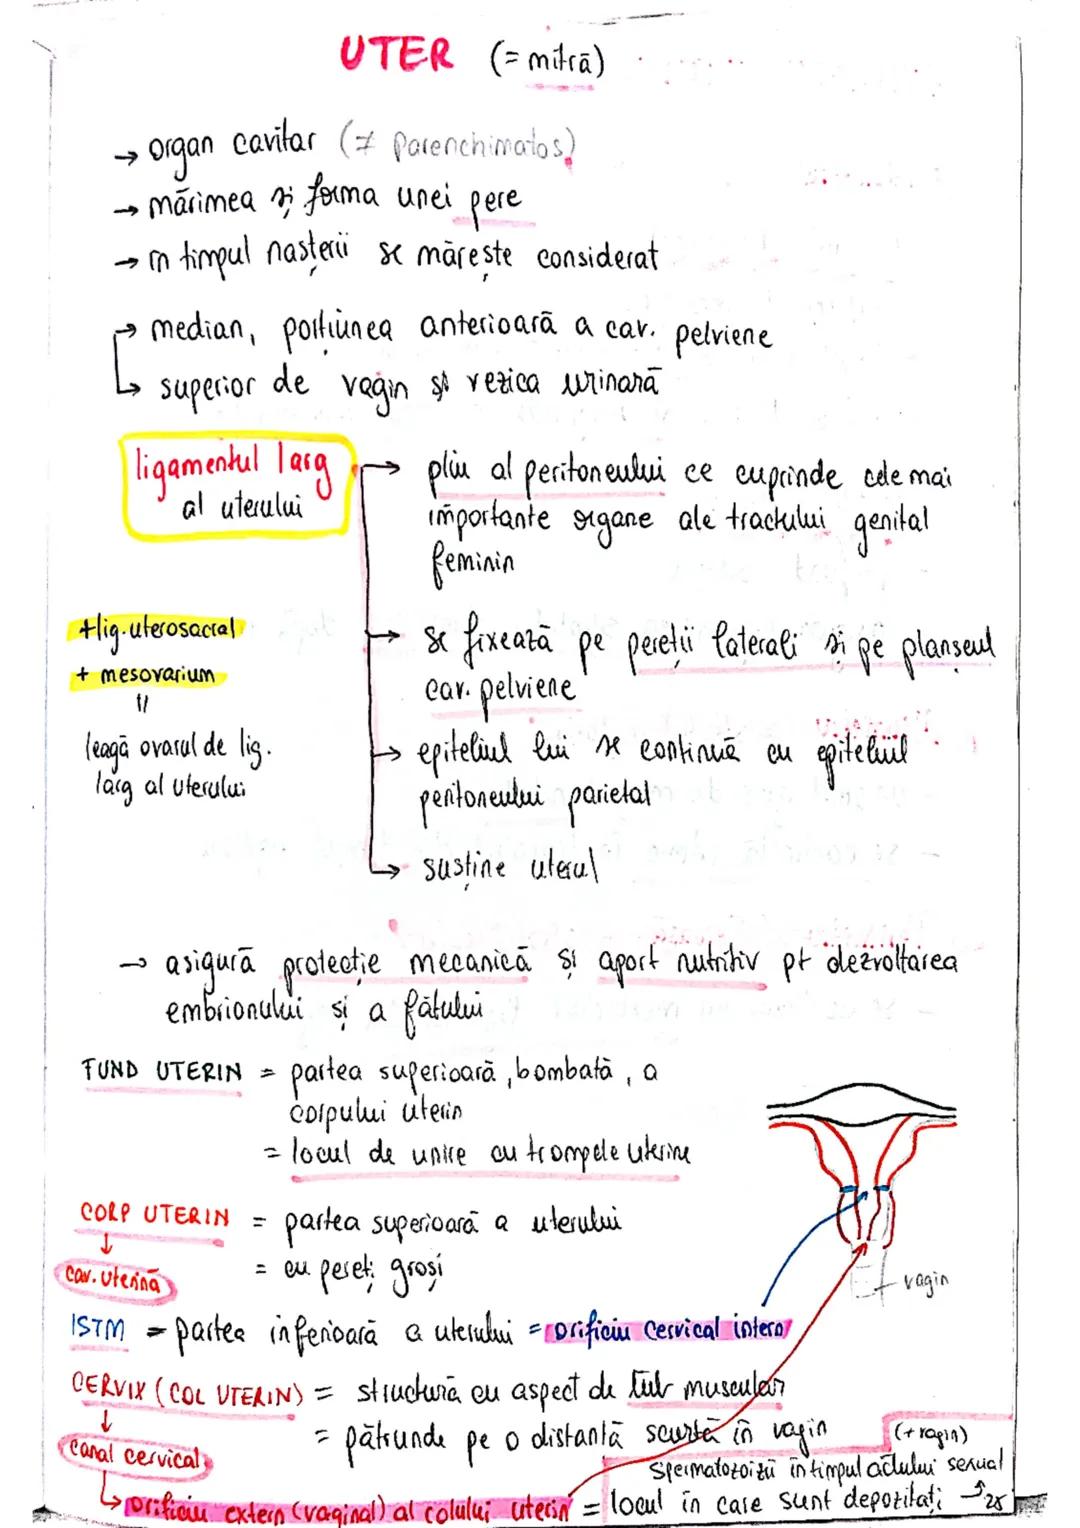 UTER (= mitră)
→ organ cavitar (≠ parenchimatos)
→ mărimea și forma unei pere
→ în timpul nașterii se mărește considerat
→ median, porțiunea anterioară a cav. pelviene
↳ superior de vagin și vezica urinară
ligamentul larg
al uterului
→ pliu al peritoneului ce cuprinde cele mai
importante organe ale tractului genital
feminin
+lig. uterosacral
+ mesovarium
=
leagă ovarul de lig.
larg al uterului
→ se fixează pe pereții laterali și pe planșeul
cav. pelviene
→ epiteliul lui se continuă cu epiteliul
peritoneului parietal
→ susține uterul
→ asigură protecție mecanică și aport nutritiv pt dezvoltarea
embrionului și a fătului
FUND UTERIN = partea superioară, bombată, a
corpului uterin
= locul de unire cu trompele uterine
CORP UTERIN = partea superioară a uterului
↓
cav. uterină
= cu pereți groși
vagin
ISTM = partea inferioară a uterului = orificiu cervical intern
CERVIX (COL UTERIN) = structură cu aspect de tub muscular
↓
canal cervical
= pătrunde pe o distanță scurtă în vagin
(+ vagin)
↳ orificiu extern (vaginal) al colului uterin = locul în care sunt depozitați
spermatozoizii în timpul actului sexual